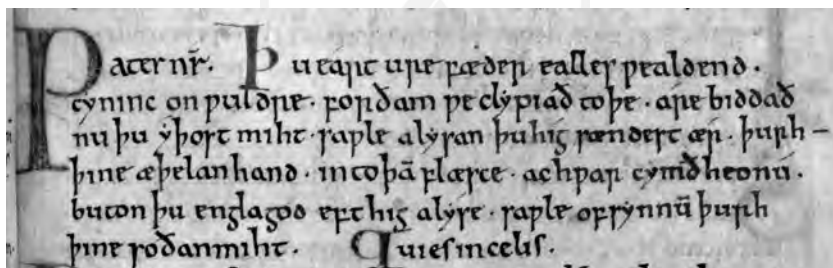 Pater nr̄. Þu eart ure fæder ealles ƿealdend.
cyninc on ƿuldre. forðam ƿe clypiað to þe. are biddað
nu þu yþost miht. saƿle alysan þu hig sændest ær. þurh –
þine æþelan hand. in to þā flæsce. ac hƿar cymð heo nu.
buton þu engla god eft hig alyse. saƿle of synnū þurh
þine soðan miht. Qui es in celis.